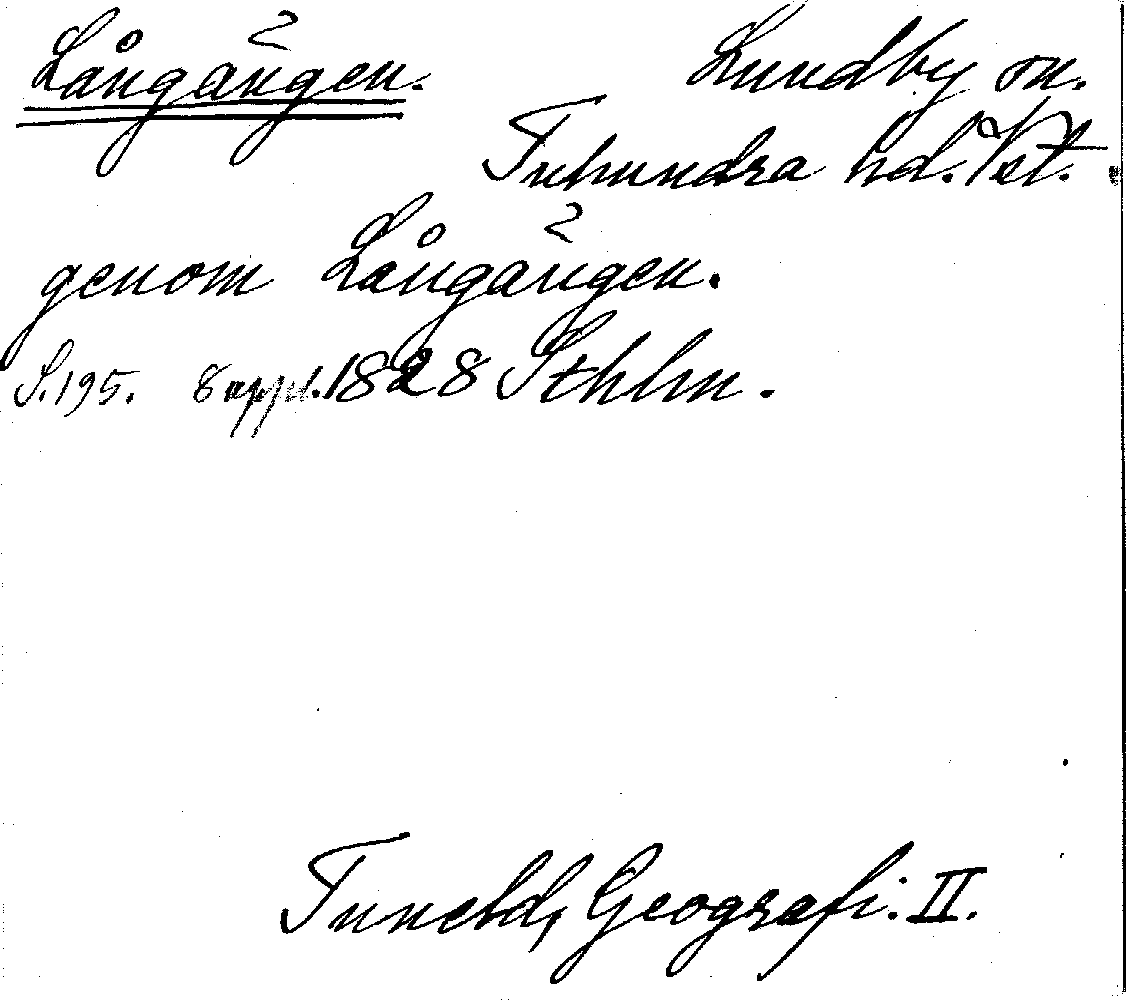 Långängen.
Lundby sn.
Tuhundra hd. Vst.
genom Långängen.
S. 195. 8 uppl. 1828 Sthlm.
Tuneld, Geografi. II.